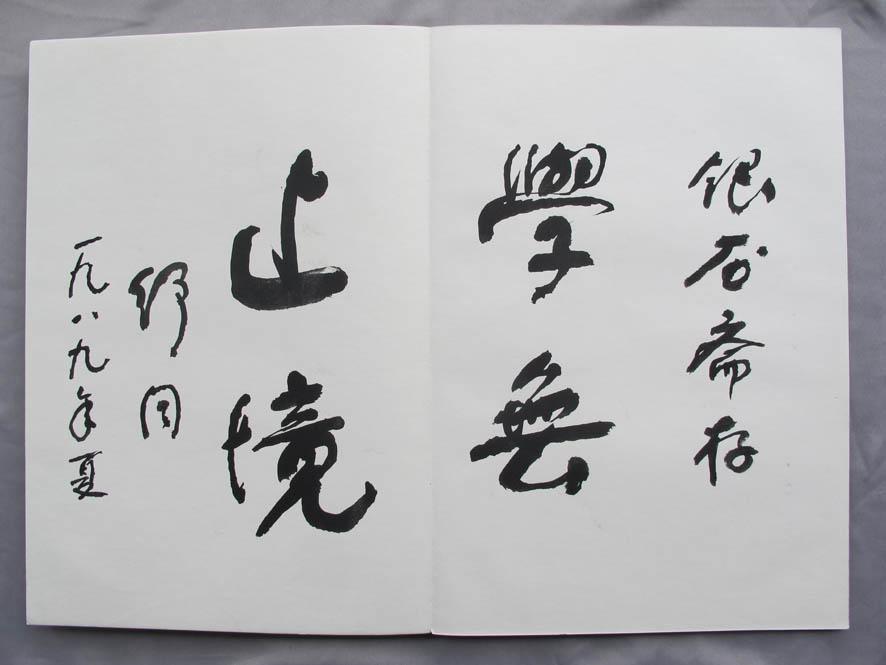 银石斋存
學無
止境
舒同
一九八九年夏